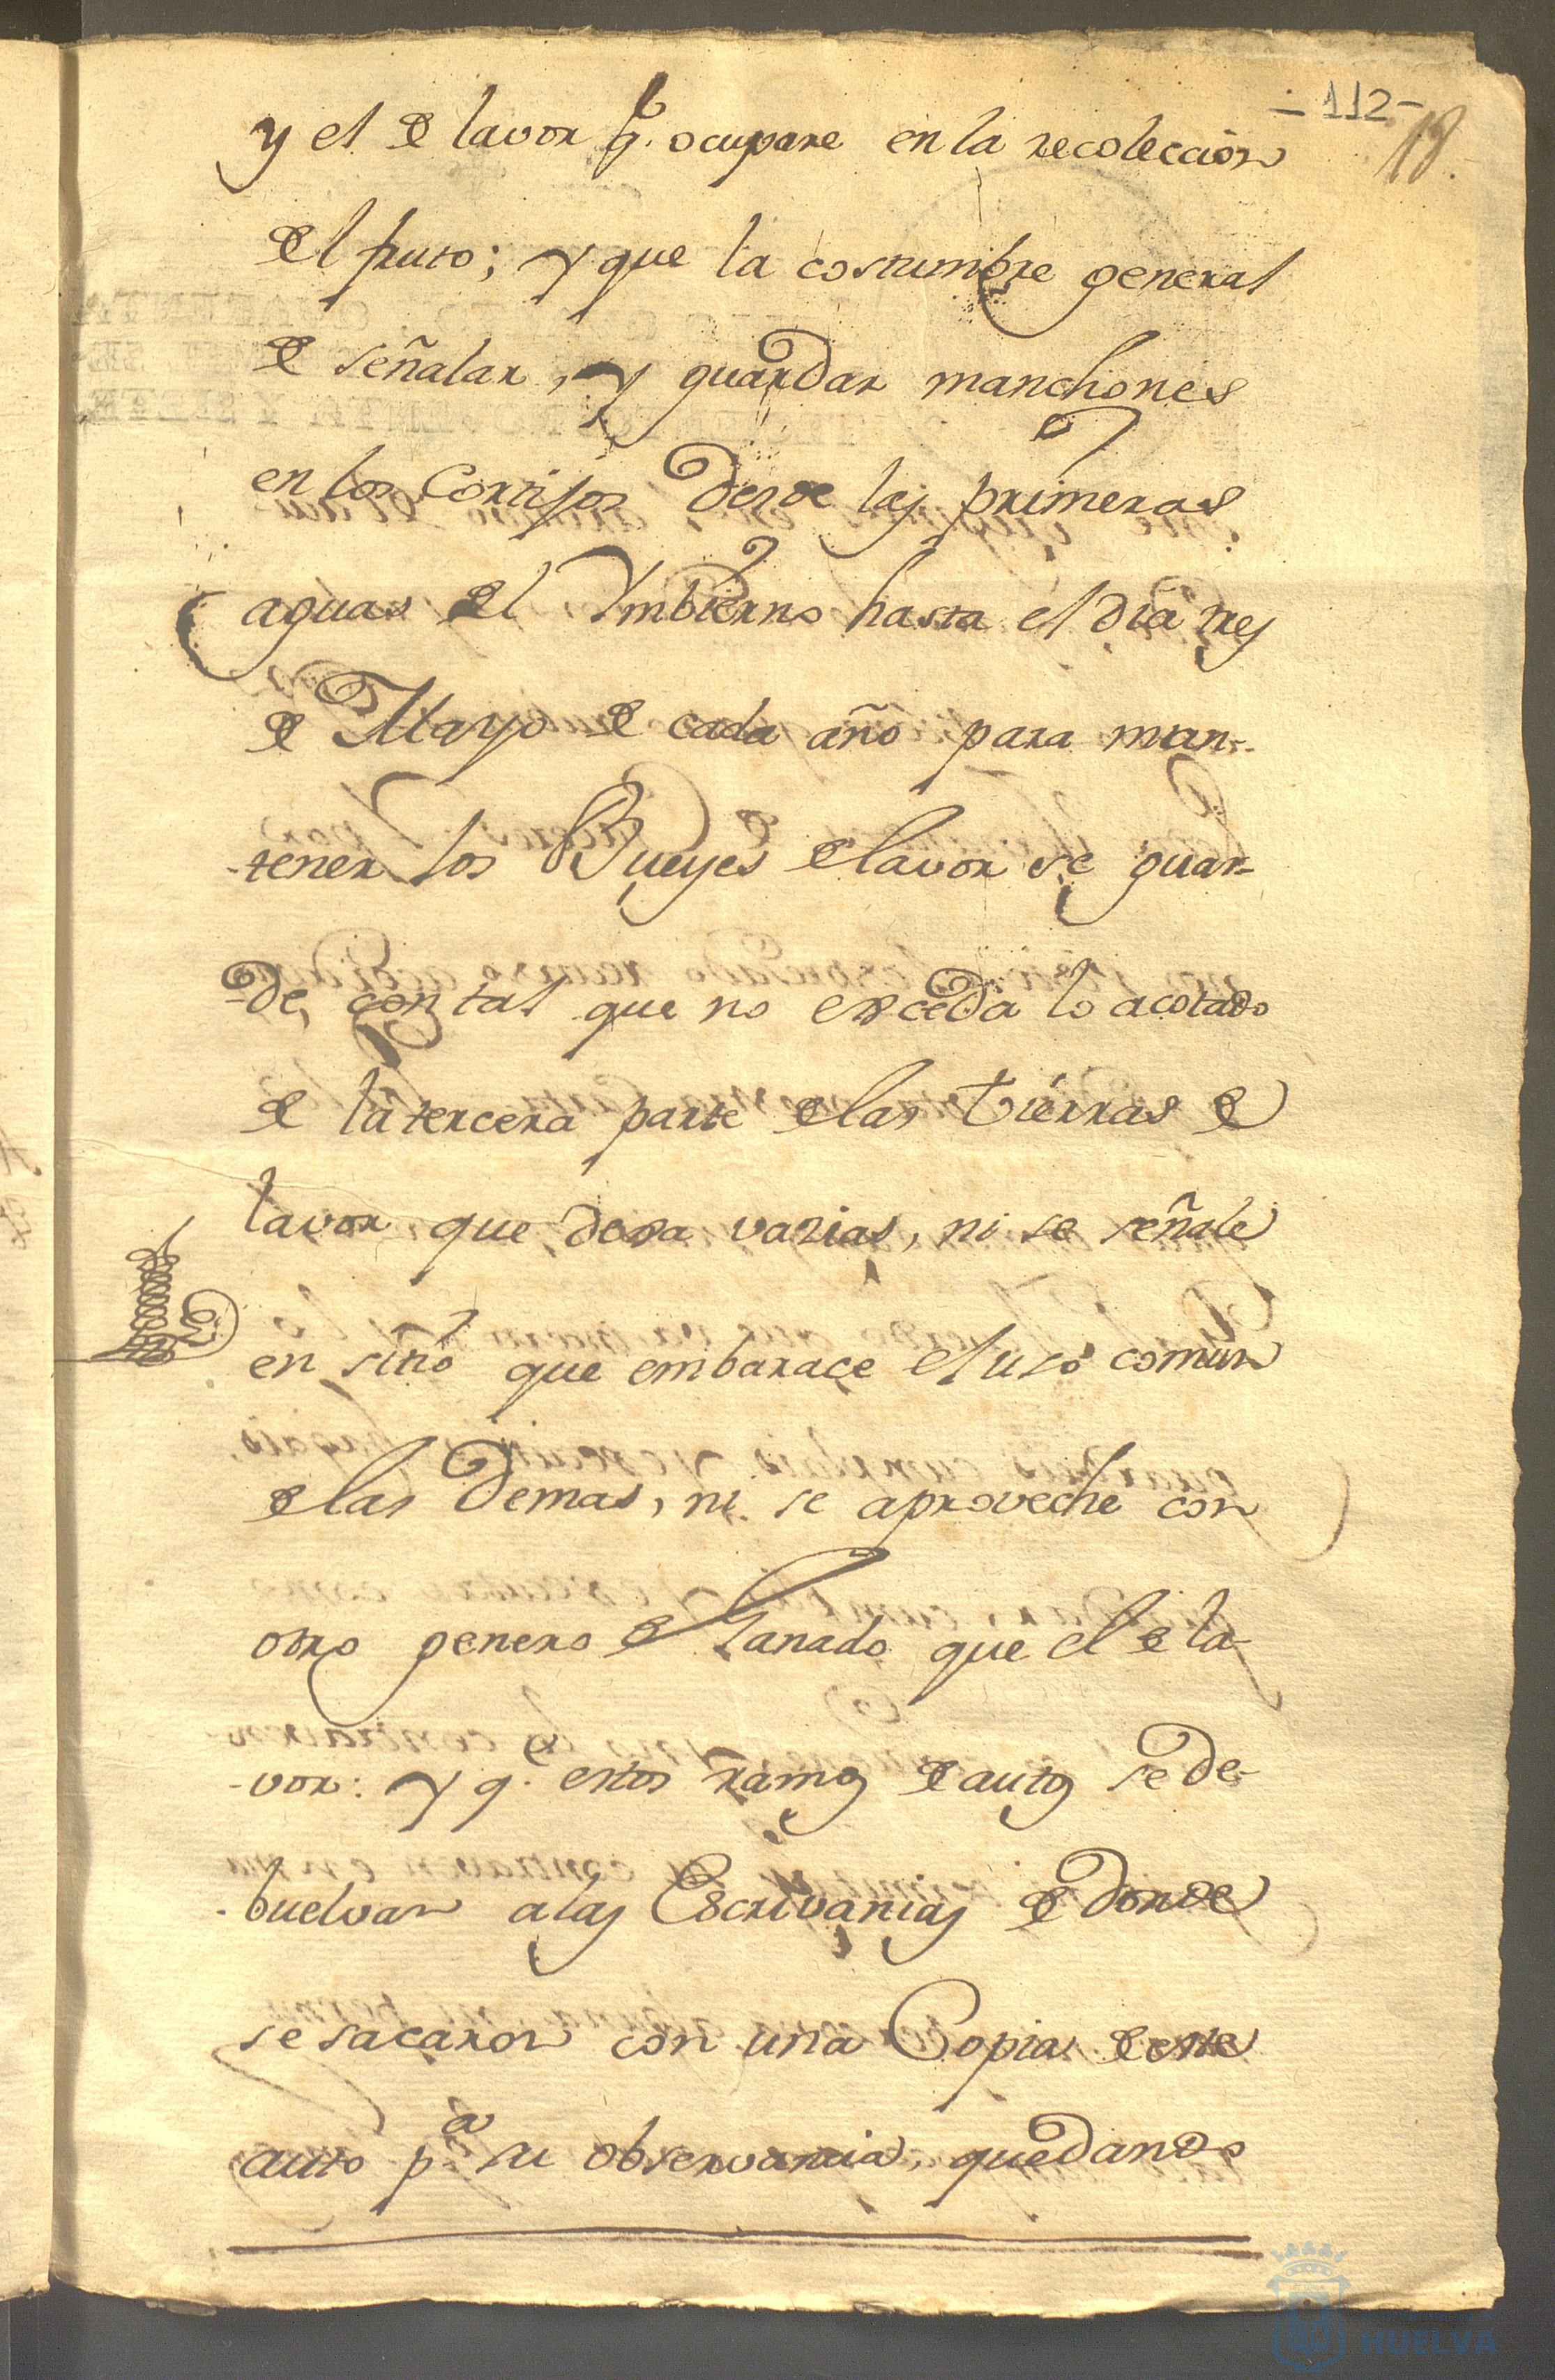 - 112 -
18.
y el de lavor q.e ocupare en la recoleccion
del fruto; y que la costumbre general
de señalar, y guardar manchones
en los Cortijos desde las primeras
aguas del Ymbierno hasta el dia tres
de Mayo de cada año para man-
tener los Bueyes de lavor se guar-
de, con tal que no exceda lo acotado
de la tercera parte de las tierras de
lavor que dexa varias, ni se señale
en sitio que embarace el uso comun
de las demas, ni se aproveche con
otro genero de Ganado que el de la-
vor: y q.e estos ramos de autos se de-
buelvan a las Escrivanias de donde
se sacaron con una Copia de este
auto p.a su observancia, quedando
HUELVA